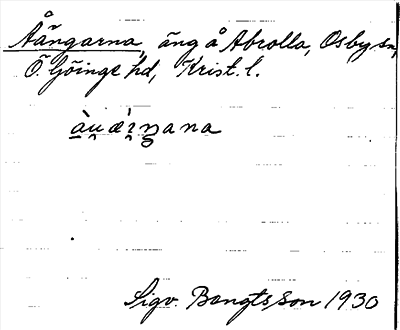 Åängarna, äng å Abrolla, Osby sn,
Ö. Göinge hd, Krist. l.
Sigv. Bengtsson 1930